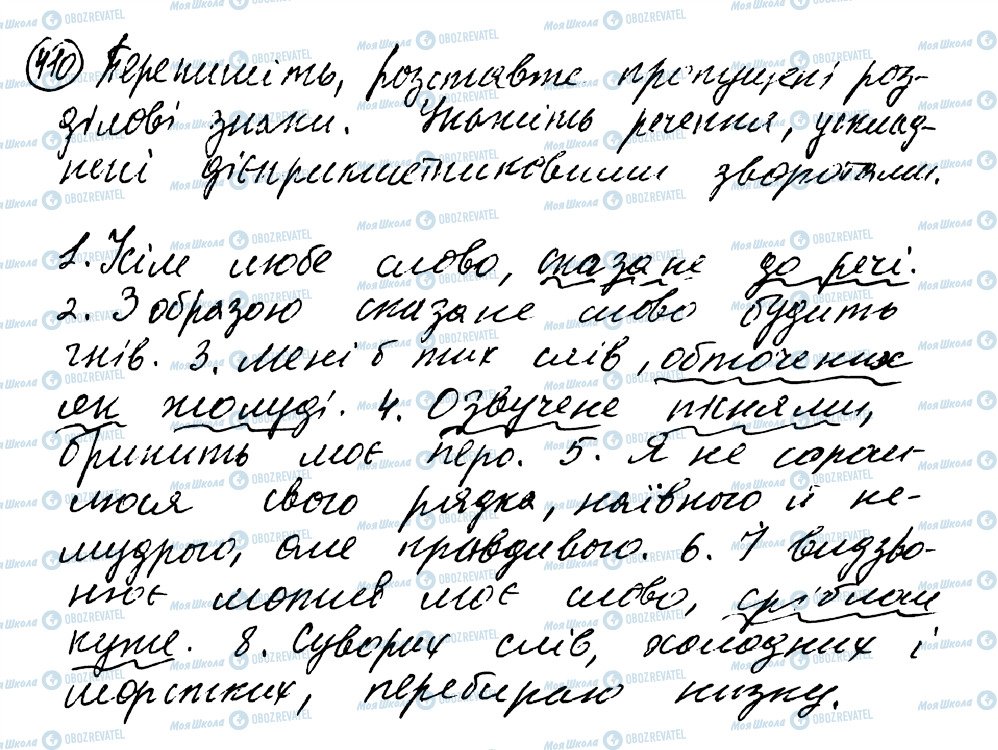 410 Перепишіть, розставте пропущені роз-
ділові знаки. Укажіть речення, усклад-
нені дієприкметниковими зворотами.
1. Усім любе слово, сказане до речі.
2. З образою сказане слово будить
гнів. 3. Мені б тих слів, обточених
як жолуді. 4. Озвучене піснями,
бринить моє перо. 5. Я не сором-
люся свого рядка, наївного й не-
мудрого, але правдивого. 6. І видзво-
нює мотив моє слово, сріблом
куте. 8. Суворих слів, холодних і
шорстких, перебираю низку.